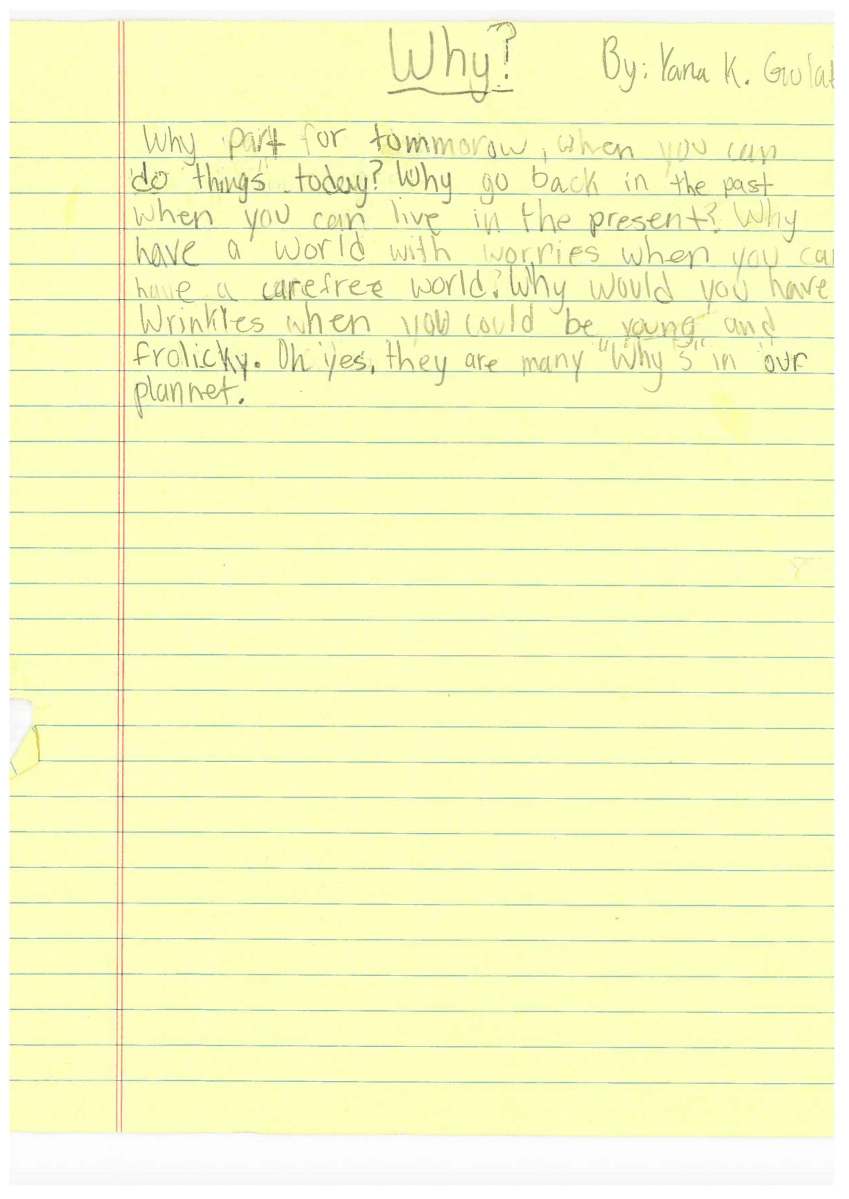 Why? By: Yana K. Gulat
Why part for tommorow, when you can
do things today? Why go back in the past
when you can live in the present? Why
have a world with worries when you ca
have a carefree world? Why would you have
Wrinkles when you could be young and
frolicky. Oh yes, they are many "Why's" in our
plannet.